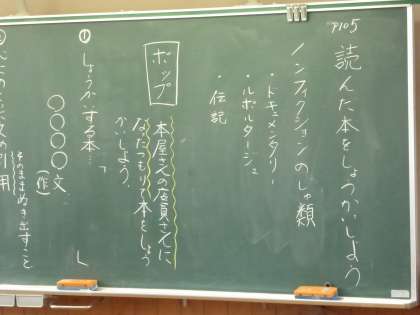 P105
読んだ本をしょうかいしよう
ノンフィクションのしゅ類
・ドキュメンタリー
・ルポルタージュ
・伝記
ポップ
本屋さんの店員さんに
なったつもりで本をしょう
かいしよう。
①しょうかいする本…「 」
〇〇〇〇文
(作)
の引用
そのままぬき出すこと